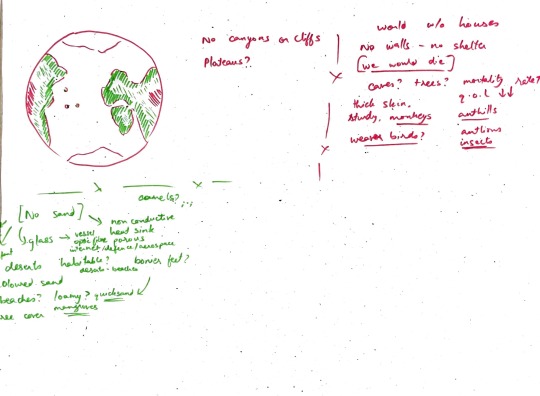 No canyons or cliffs
Plateaus?
world w/o houses
No walls - no shelter
[we would die]
caves? trees? mortality rate?
q.o.l ↓↓
thick skin,
study, monkeys anthills
weaver birds? antlions
insects
camels?
[No sand] → non conductive
glass → vessel heat sink
optic fibre porous
internet/defence/aerospace
deserts habitable? bonier feet?
deserts - beaches
coloured sand
beaches? loamy? quicksand
tree cover mangroves